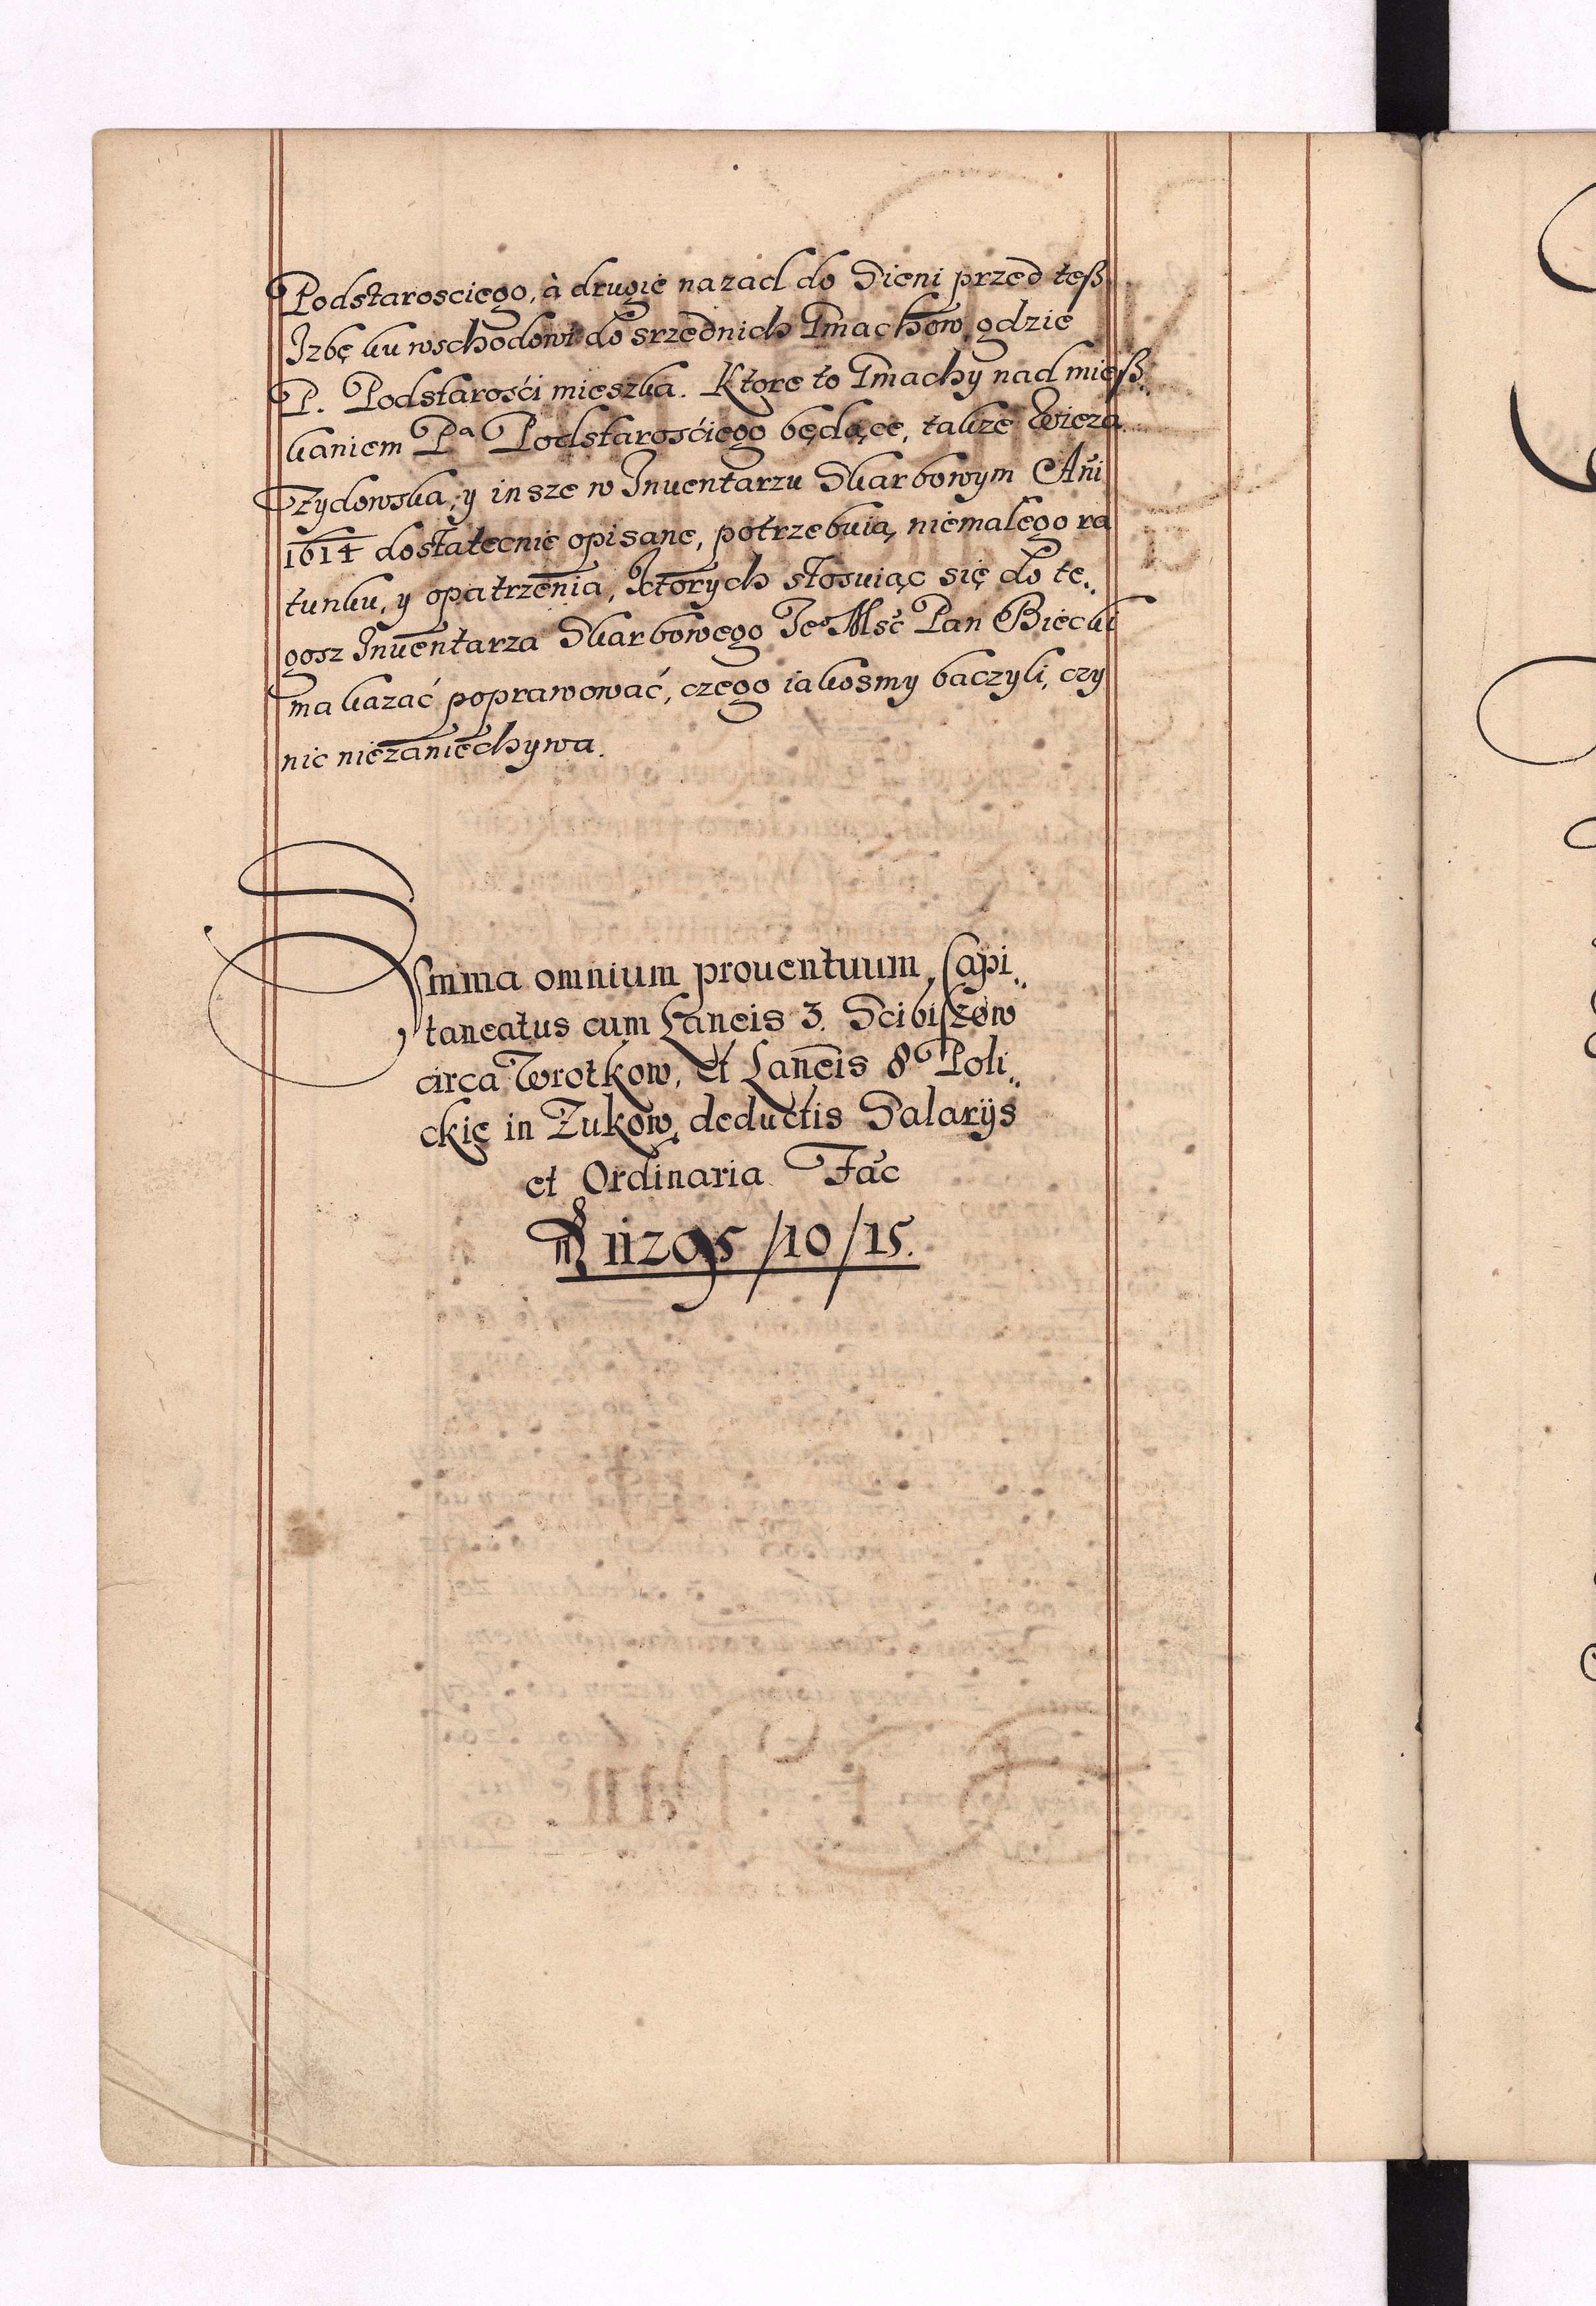 Podstarosciego, à drugie nazad do Sieni przed teß
Izbę ku wschodowi do srzednich Gmachow, gdzie
P. Podstarośći mieszka. Ktore to Gmachy nad mieß
kaniem Pᵃ Podstarośćiego będące, takze Wieza
Zydowska, y insze w Inuentarzu Skarbowym Añi
1614 dostatecnie opisane, potrzebuią niemałego ra
tunku, y opatrzenia, Ktorych stosuiąc się do te„
gosz Inuentarza Skarbowego Jeº Mść Pan Biecki
ma kazać poprawować, czego iakosmy baczyli, czy
nic niezaniechywa.
Sũmma omnium prouentuum, Capi„
taneatus cum Laneis 3. Scibiszow
circa Wrotkow, et Laneis 8 Poli„
ckie in Zukow, deductis Salarijs
et Ordinaria Fac̃
11295/10/15.